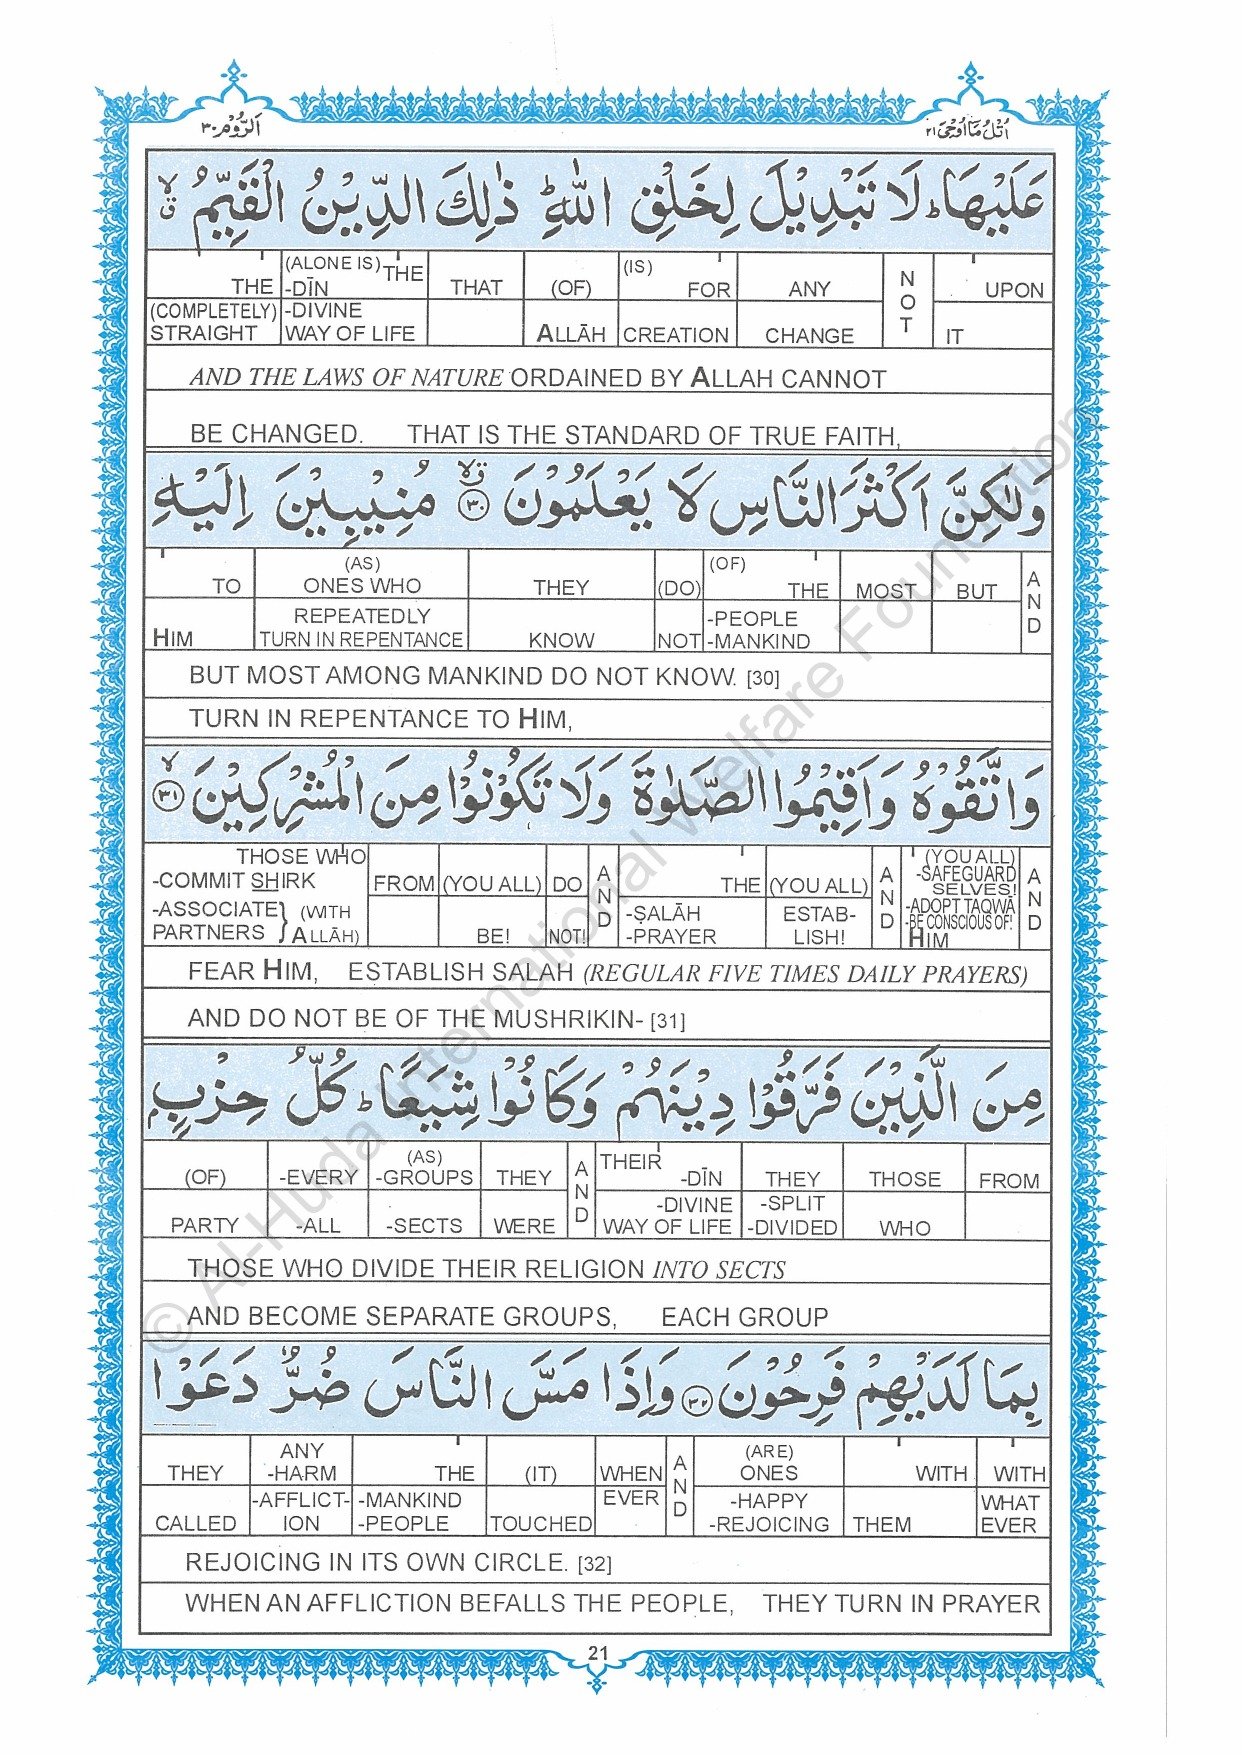 اُتْلُ مَآ اُوْحِیَ ٢١
اَلرُّوْمُ ٣٠
عَلَيْهَا ؕ لَا تَبْدِيْلَ لِخَلْقِ اللّٰهِ ؕ ذٰلِكَ الدِّيْنُ الْقَيِّمُ ۙ ق
THE (ALONE IS) THE -DĪN THAT (OF) (IS) FOR ANY NOT UPON
(COMPLETELY) STRAIGHT -DIVINE WAY OF LIFE ALLĀH CREATION CHANGE IT
AND THE LAWS OF NATURE ORDAINED BY ALLAH CANNOT
BE CHANGED. THAT IS THE STANDARD OF TRUE FAITH,
وَلٰكِنَّ اَكْثَرَ النَّاسِ لَا يَعْلَمُوْنَ ۙ ق ﴿٣٠﴾ مُنِيْبِيْنَ اِلَيْهِ
TO (AS) ONES WHO THEY (DO) (OF) THE MOST BUT AND
HIM REPEATEDLY TURN IN REPENTANCE KNOW NOT -PEOPLE -MANKIND
BUT MOST AMONG MANKIND DO NOT KNOW. [30]
TURN IN REPENTANCE TO HIM,
وَاتَّقُوْهُ وَاَقِيْمُوا الصَّلٰوةَ وَلَا تَكُوْنُوْا مِنَ الْمُشْرِكِيْنَ ۙ ﴿٣١﴾
THOSE WHO -COMMIT SHIRK FROM (YOU ALL) DO AND THE (YOU ALL) AND (YOU ALL) -SAFEGUARD SELVES! AND
-ASSOCIATE PARTNERS } (WITH ALLĀH) BE! NOT! -ṢALĀH -PRAYER ESTAB-LISH! -ADOPT TAQWĀ -BE CONSCIOUS OF! HIM
FEAR HIM, ESTABLISH SALAH (REGULAR FIVE TIMES DAILY PRAYERS)
AND DO NOT BE OF THE MUSHRIKIN- [31]
مِنَ الَّذِيْنَ فَرَّقُوْا دِيْنَهُمْ وَكَانُوْا شِيَعًا ؕ كُلُّ حِزْبٍۭ
(OF) -EVERY (AS) -GROUPS THEY AND THEIR -DĪN THEY THOSE FROM
PARTY -ALL -SECTS WERE -DIVINE WAY OF LIFE -SPLIT -DIVIDED WHO
THOSE WHO DIVIDE THEIR RELIGION INTO SECTS
AND BECOME SEPARATE GROUPS, EACH GROUP
بِمَا لَدَيْهِمْ فَرِحُوْنَ ﴿٣٢﴾ وَاِذَا مَسَّ النَّاسَ ضُرٌّ دَعَوْا
THEY ANY -HARM THE (IT) WHEN AND (ARE) ONES WITH WITH
CALLED -AFFLICT-ION -MANKIND -PEOPLE TOUCHED EVER -HAPPY -REJOICING THEM WHAT EVER
REJOICING IN ITS OWN CIRCLE. [32]
WHEN AN AFFLICTION BEFALLS THE PEOPLE, THEY TURN IN PRAYER
21
© Al-Huda International Welfare Foundation